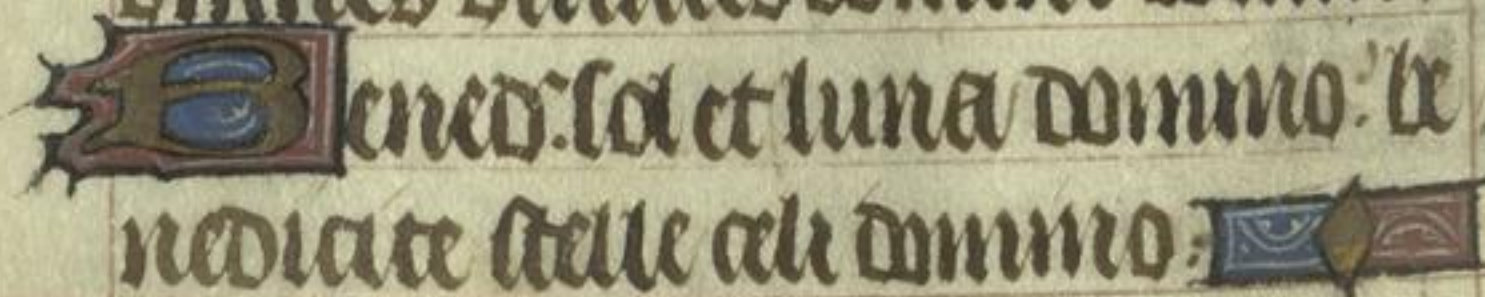 Bened: sol et luna domino: be
nedicite stelle celi domino: